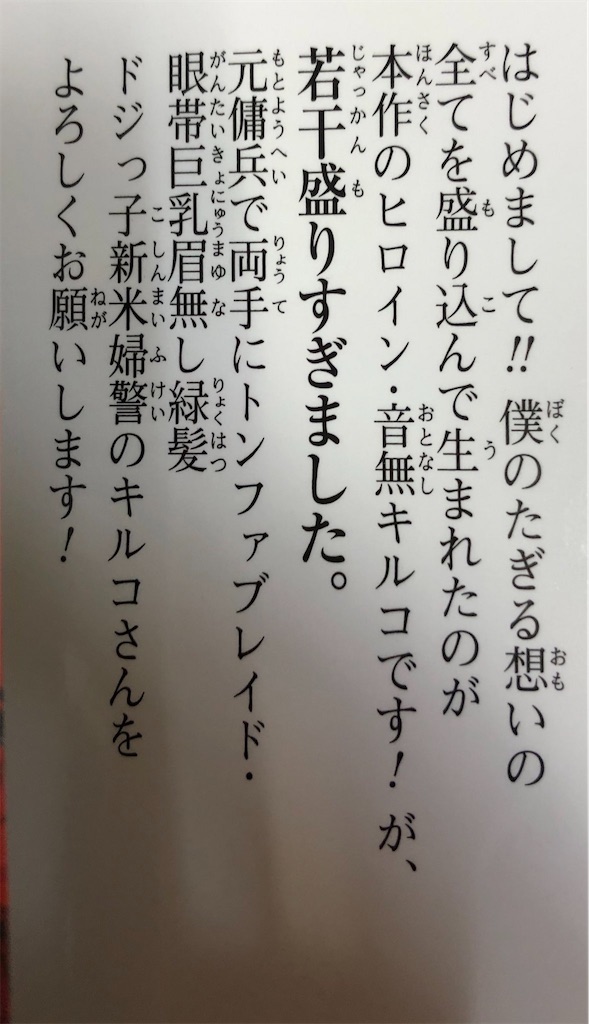 はじめまして!! 僕のたぎる想いの
全てを盛り込んで生まれたのが
本作のヒロイン・音無キルコです! が、
若干盛りすぎました。
元傭兵で両手にトンファブレイド・
眼帯巨乳眉無し緑髪
ドジっ子新米婦警のキルコさんを
よろしくお願いします!